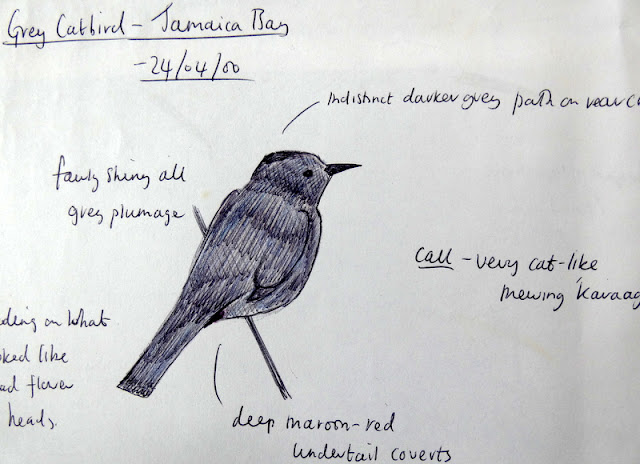 Grey Catbird - Jamaica Bay
- 24/04/00
indistinct darker grey patch on rear c
fairly shiny all
grey plumage
call - very cat-like
mewing 'Kavaag
ding on what
oked like
ad flower
heads.
deep maroon-red
undertail coverts